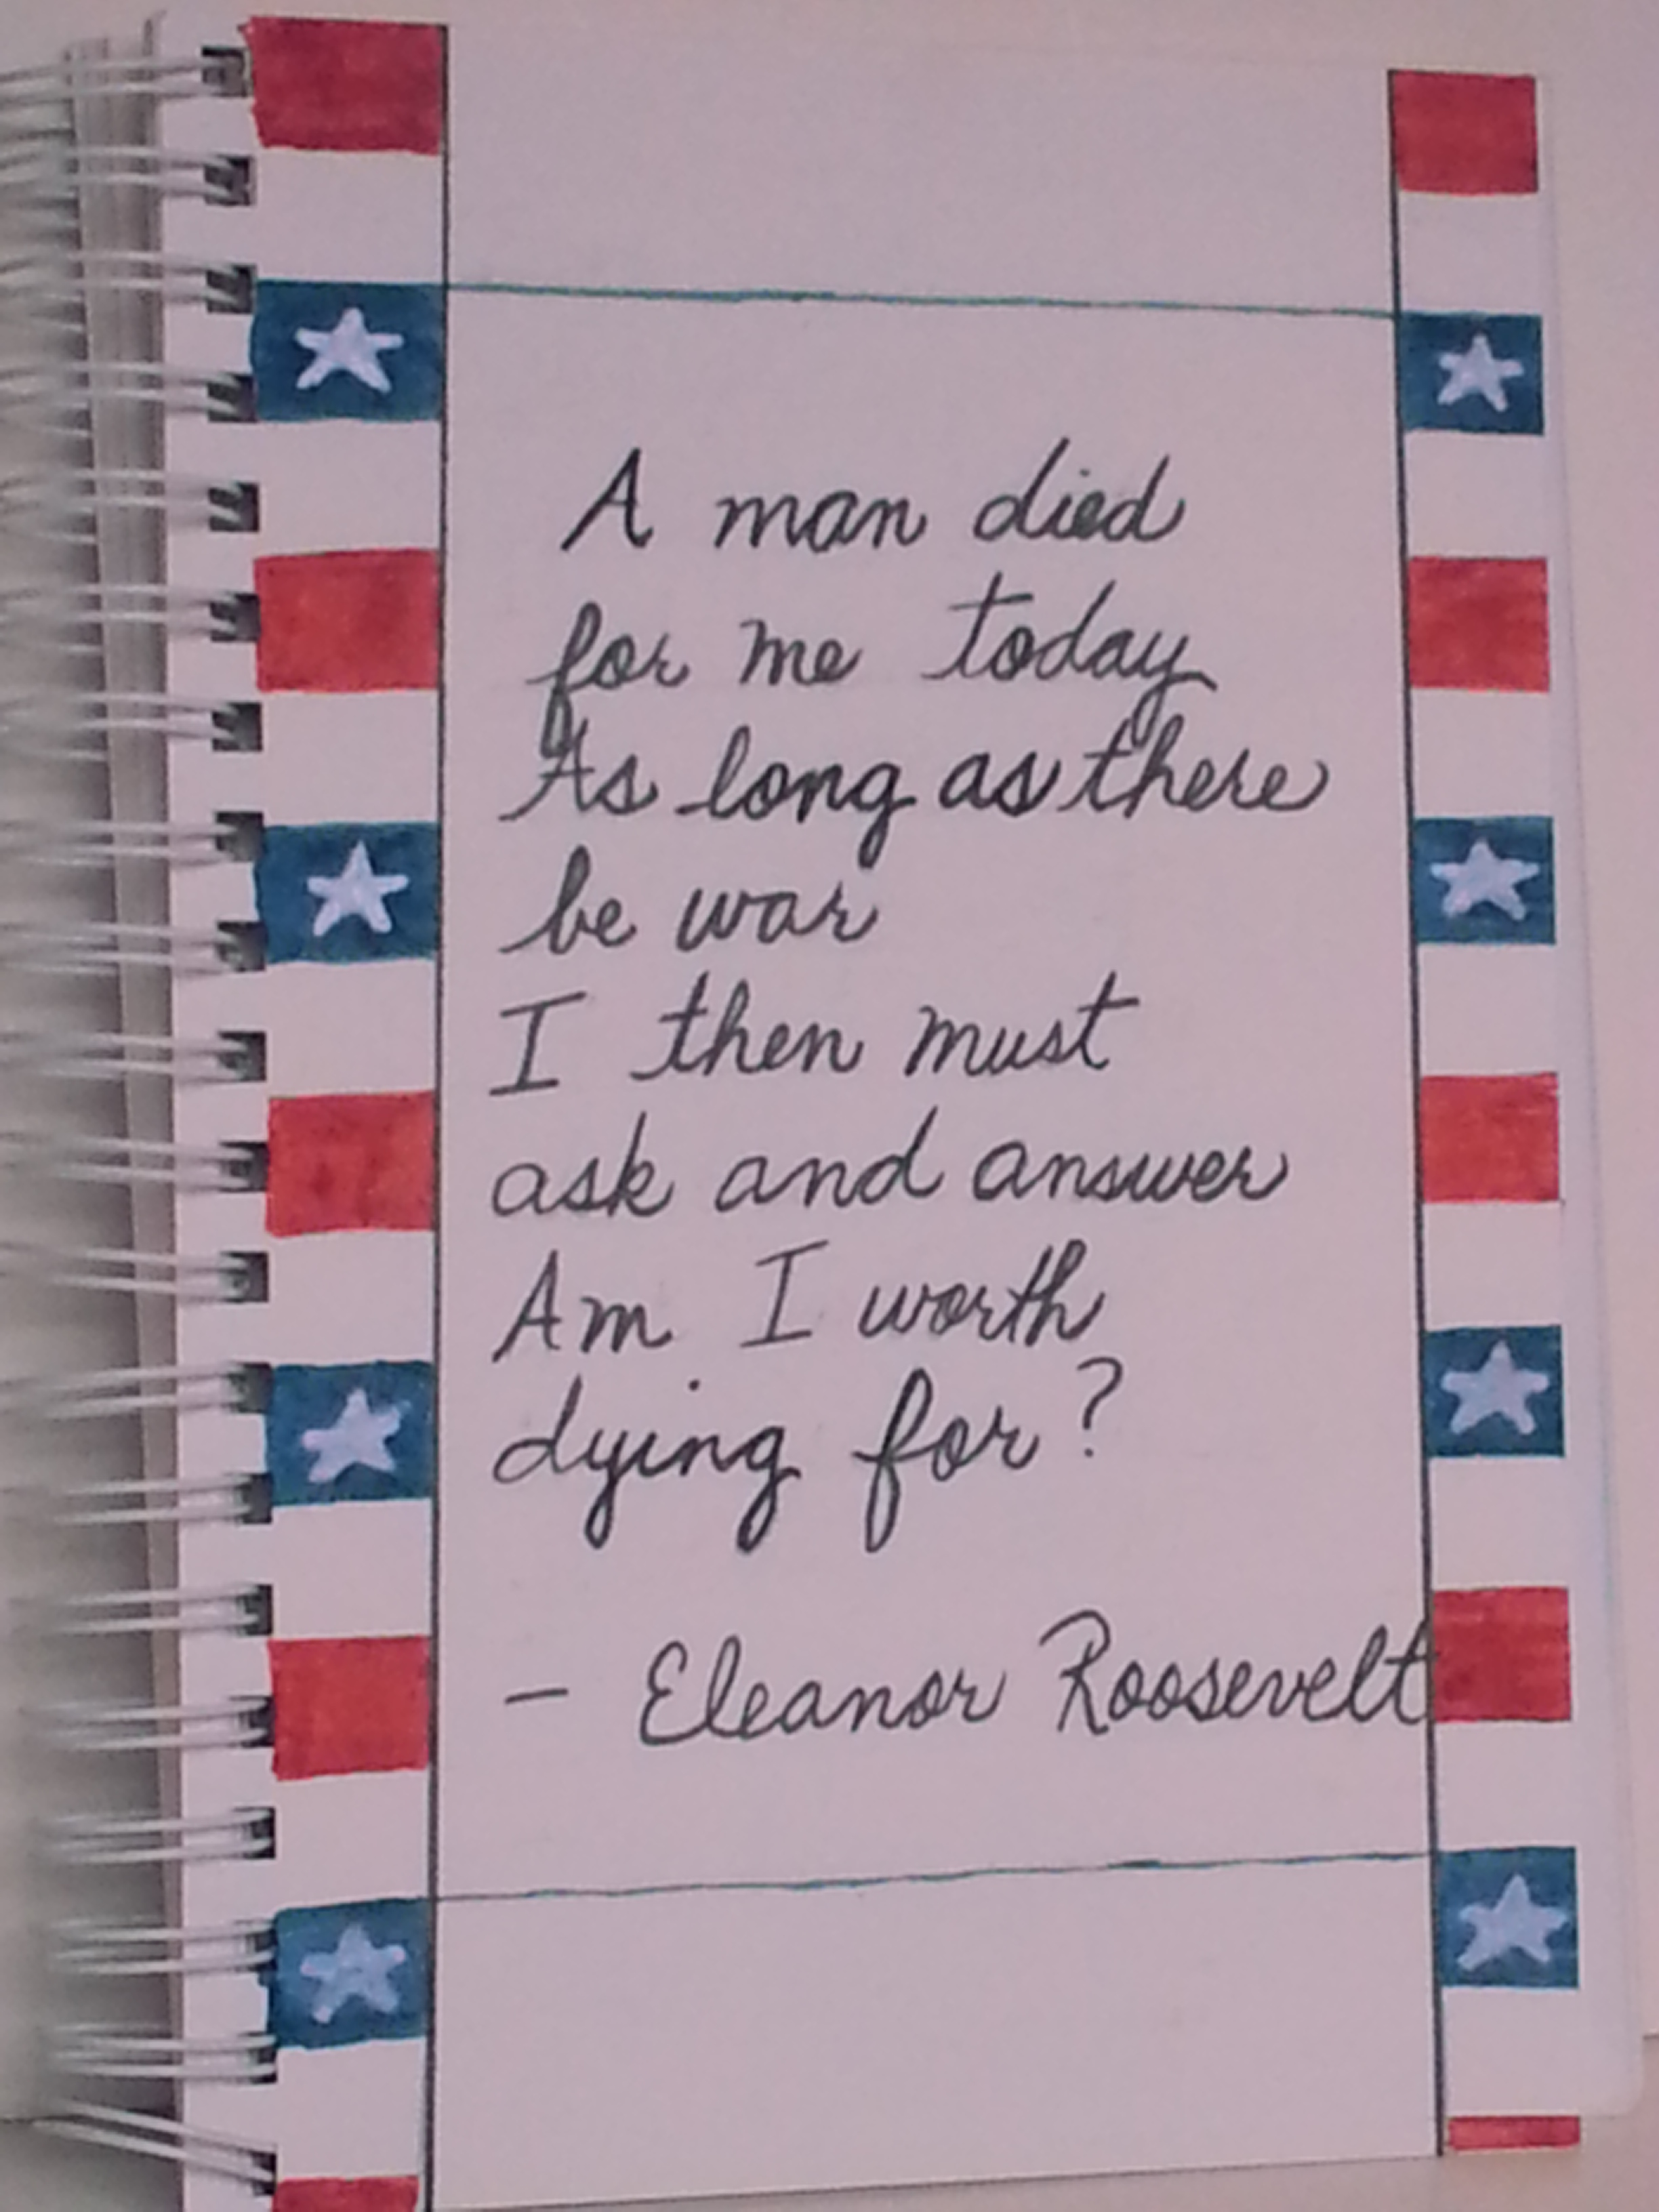 A man died
for me today
As long as there
be war
I then must
ask and answer
Am I worth
dying for?
- Eleanor Roosevelt